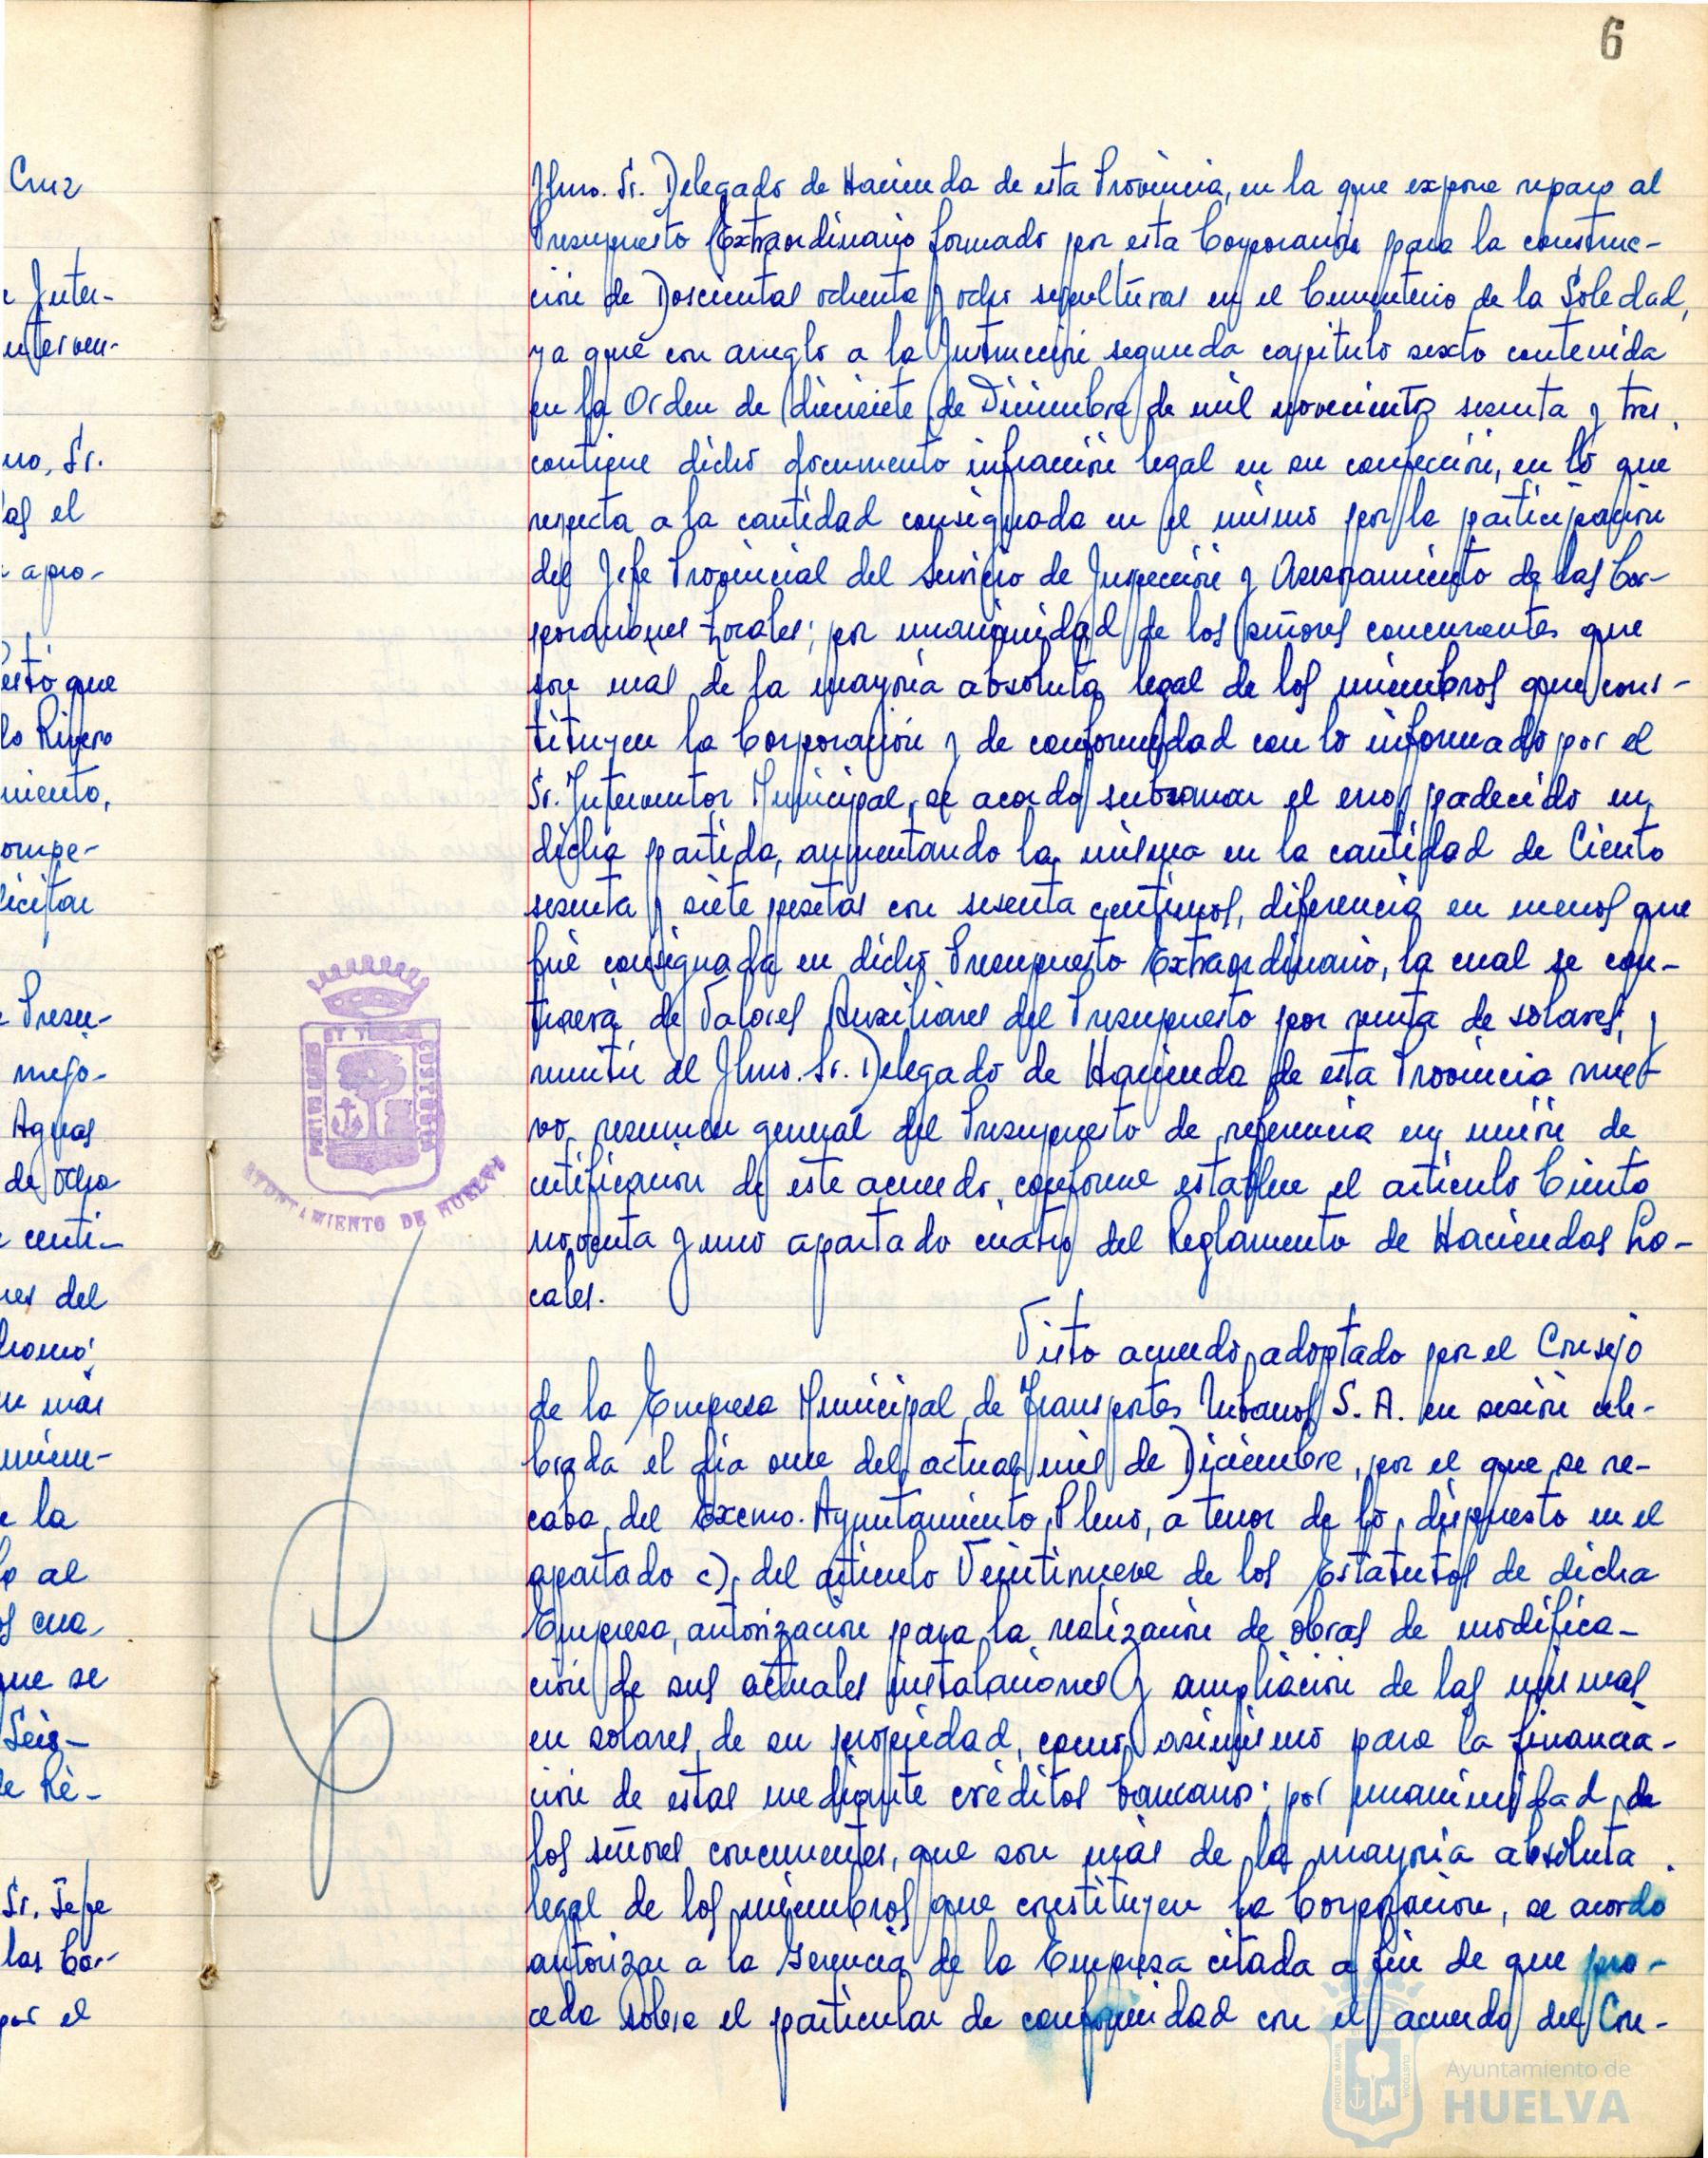 6
Cruz
e Inter-
interven-
no, Sr.
las el
apro-
esto que
lo Rivero
miento,
ompe-
licitar
Presu-
mejo-
Aguas
de ocho
centi-
res del
más
miem-
e la
al
cua-
que se
Seis-
de Ré-
Sr. Jefe
las Cor-
por el
Ilmo. Sr. Delegado de Hacienda de esta Provincia, en la que expone reparo al
Presupuesto Extraordinario formado por esta Corporación para la construc-
ción de Doscientas ochenta y ocho sepulturas en el Cementerio de la Soledad,
ya que con arreglo a la Instrucción segunda capítulo sexto contenida
en la Orden de diecisiete de Diciembre de mil novecientos sesenta y tres,
contiene dicho documento infracción legal en su confección, en lo que
respecta a la cantidad consignada en el mismo por la participación
del Jefe Provincial del Servicio de Inspección y Asesoramiento de las Cor-
poraciones Locales; por unanimidad de los señores concurrentes que
son más de la mayoría absoluta legal de los miembros que cons-
tituyen la Corporación y de conformidad con lo informado por el
Sr. Interventor Municipal, se acordó subsanar el error padecido en
dicha partida, aumentando la misma en la cantidad de Ciento
sesenta y siete pesetas con sesenta centimos, diferencia en menos que
fué consignada en dicho Presupuesto Extraordinario, la cual se con-
traerá de Valores Auxiliares del Presupuesto por venta de solares; y
remitir al Ilmo. Sr. Delegado de Hacienda de esta Provincia nue-
vo resumen general del Presupuesto de referencia en unión de
certificación de este acuerdo, conforme establece el artículo Ciento
noventa y uno apartado cuatro del Reglamento de Haciendas Lo-
cales.
Visto acuerdo adoptado por el Consejo
de la Empresa Municipal de Transportes Urbanos S. A. en sesión cele-
brada el día once del actual mes de Diciembre, por el que se re-
caba del Excmo. Ayuntamiento Pleno, a tenor de lo dispuesto en el
apartado c), del artículo Veintinueve de los Estatutos de dicha
Empresa, autorización para la realización de obras de modifica-
ción de sus actuales instalaciones y ampliación de las mismas
en solares de su propiedad, como asimismo para la financia-
ción de estas mediante créditos bancarios; por unanimidad de
los señores concurrentes, que son más de la mayoría absoluta
legal de los miembros que constituyen la Corporación, se acordó
autorizar a la Gerencia de la Empresa citada a fin de que pro-
ceda sobre el particular de conformidad con el acuerdo del Con-
PORTUS MARIS ET TERRAE CUSTODIA
AYUNTAMIENTO DE HUELVA
PORTUS MARIS
CUSTODIA
Ayuntamiento de
HUELVA